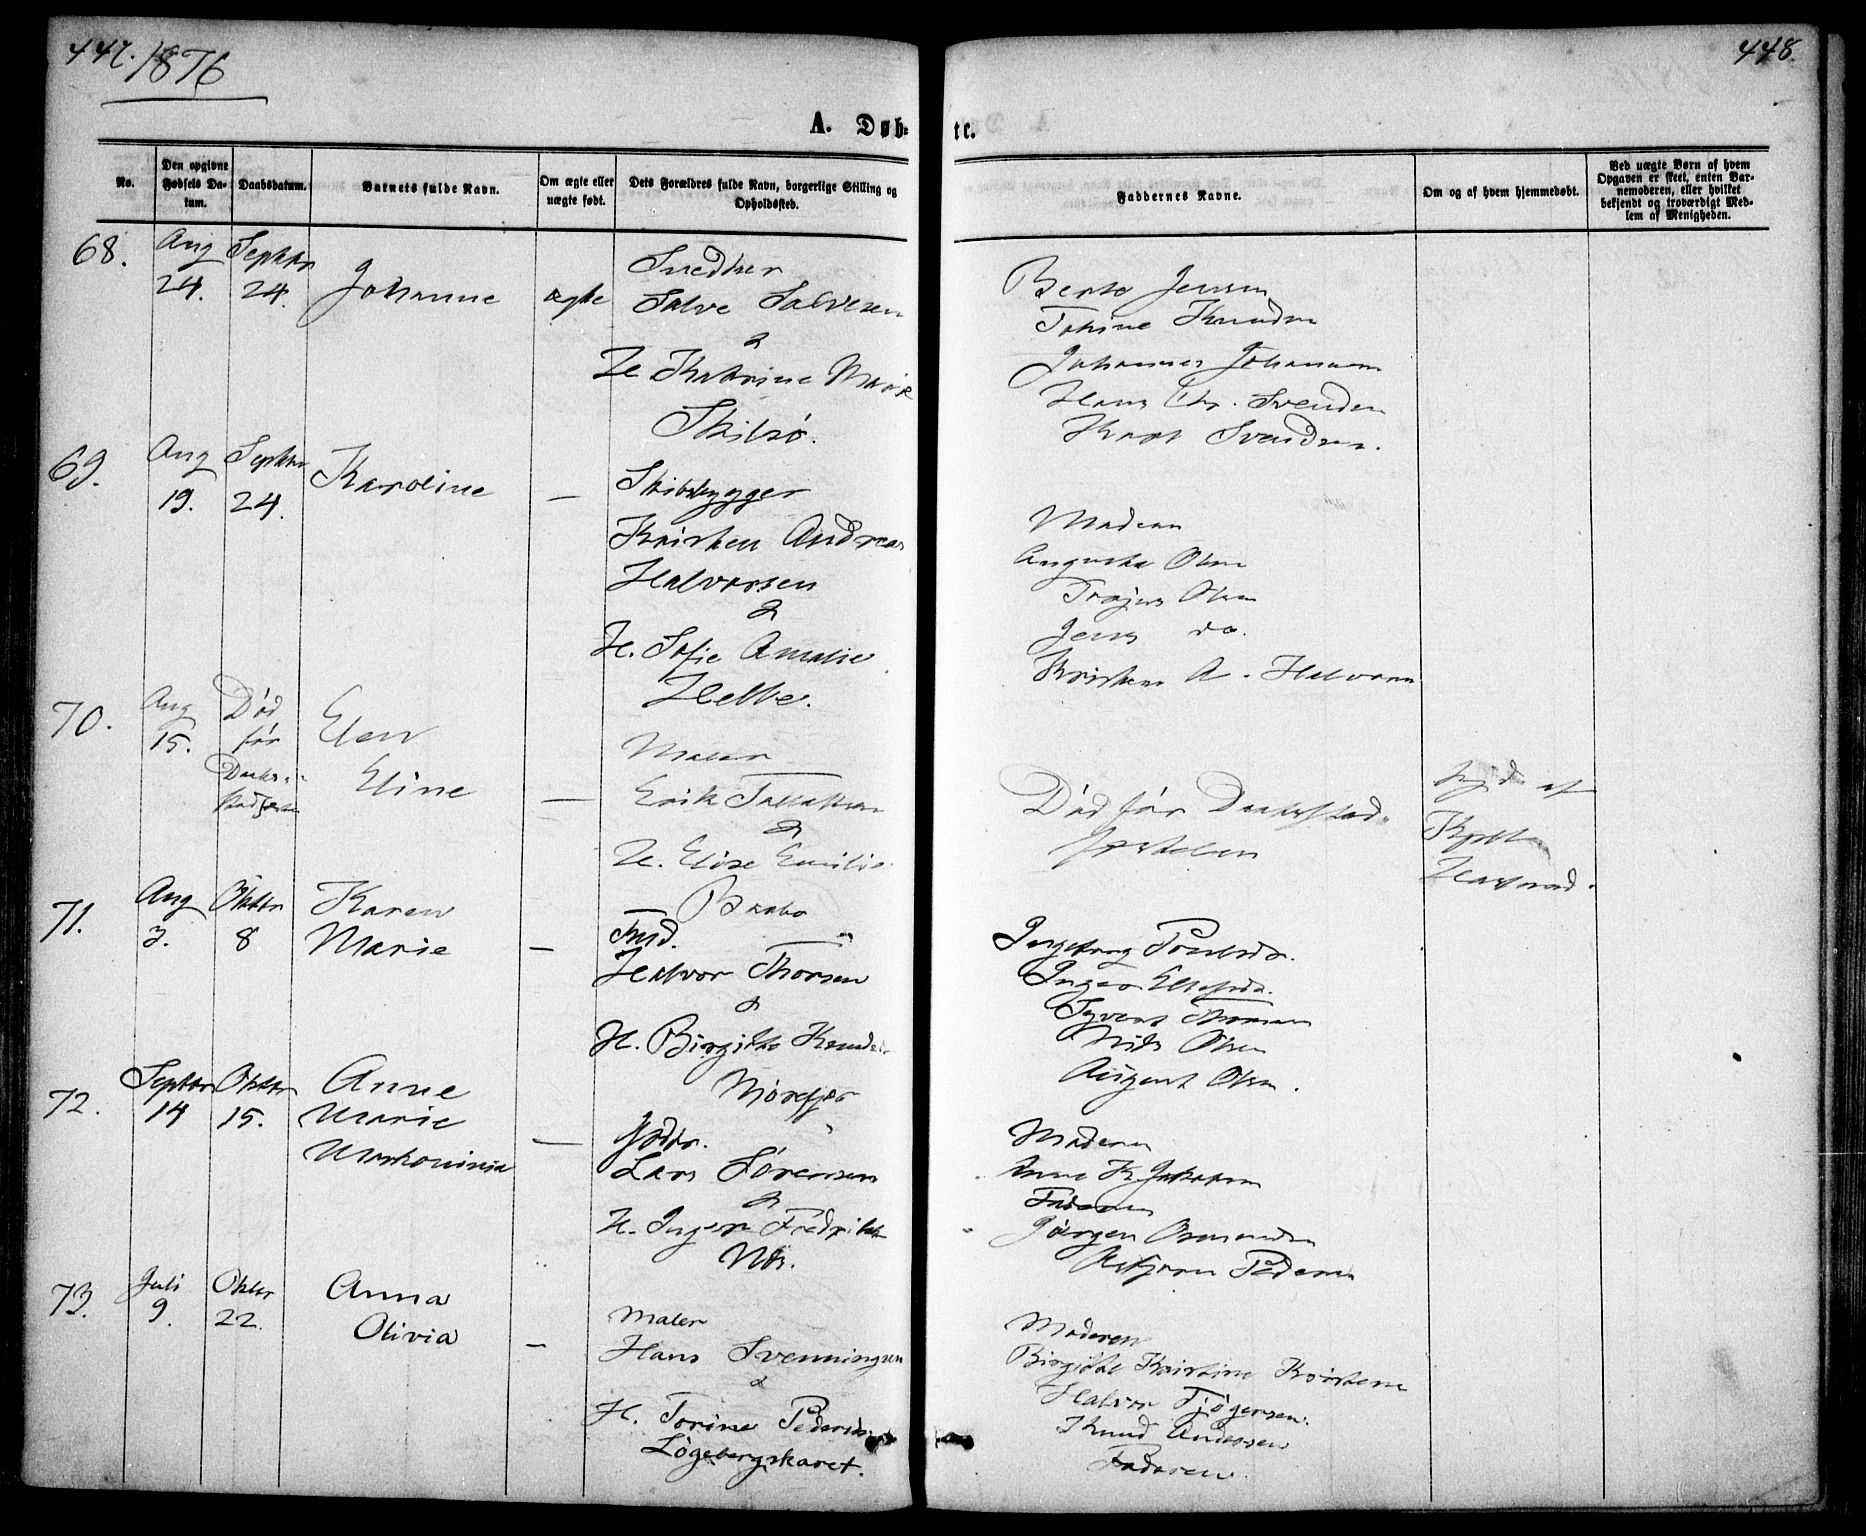 447. 1876
448.
A. Døb-
te.
No.
Den opgivne Fødsels Datum.
Daabsdatum.
Barnets fulde Navn.
Om ægte eller uægte født.
Dets Forældres fulde Navn, borgerlige Stilling og Opholdssted.
Faddernes Navne.
Om og af hvem hjemmedøbt.
Ved uægte Børn af hvem Opgaven er skeet, enten Barnemoderen, eller hvilket bekjendt og troværdigt Medlem af Menigheden.
68.
Aug 24.
Septbr 24.
Johanne
ægte
Snedker
Salve Salvesen
&
H. Katrine Marie
Skilsø.
Berte Jensen
Tomine Knudsen
Johannes Johansen
Hans Chr. Svendsen
Knut Svendsen.
69.
Aug 19.
Septbr 24.
Karoline
—
Skibsbygger
Kristen Andreas
Halvorsen
&
H. Sofie Amalie
Helle.
Moderen
Augusta Olsen
Olsen
Jens do.
Kristen A. Halvorsen
70.
Aug 15.
Død før Daabs-
Elen
Eline
—
Maler
Erik Tallaksen
&
H. Elise Emilie
Død før Daabsstad-
fæstelsen
af
71.
Aug 3.
Oktbr 8
Karen
Marie
—
Halvor Thorsen
&
H. Birgitte Knudsd.
Nørefjær
Ingeborg
Inger
Thorsen
Nils Olsen
August Olsen.
72.
Septbr 14
Oktbr 15.
Anne
Marie
—
Lars Sørensen
&
H. Inger Fredrikke
Moderen
Anne K. Jakobsen
Faderen
Jørgen
Asbjørn Pedersen
73.
Juli 9.
Oktbr 22.
Anna
Olivia
—
Maler
Hans Svenningsen
&
H. Torine Pedersd.
Løgebergskaret.
Moderen
Birgitte Kristine Kristense
Halvor Tjøgersen.
Knud Anderssen
Faderen.